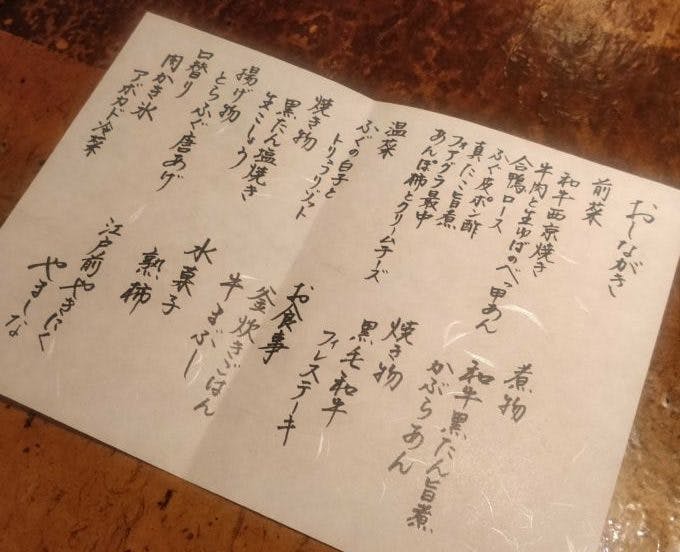 おしながき
前菜
和牛西京焼き
牛肉と生ゆばのべっ甲あん
合鴨ロース
ふぐ皮ポン酢
真たこ旨煮
フォアグラ最中
あんぽ柿とクリームチーズ
温菜
ふぐの白子と
トリュフリゾット
焼き物
黒たん塩焼き
生こしょう
揚げ物
とらふぐ唐あげ
口替り
肉かき氷
アボカド冷菜
煮物
和牛黒たん旨煮
かぶらあん
焼き物
黒毛和牛
フィレステーキ
お食事
釜炊きごはん
牛まぶし
水菓子
熟柿
江戸前やきにく
やましな